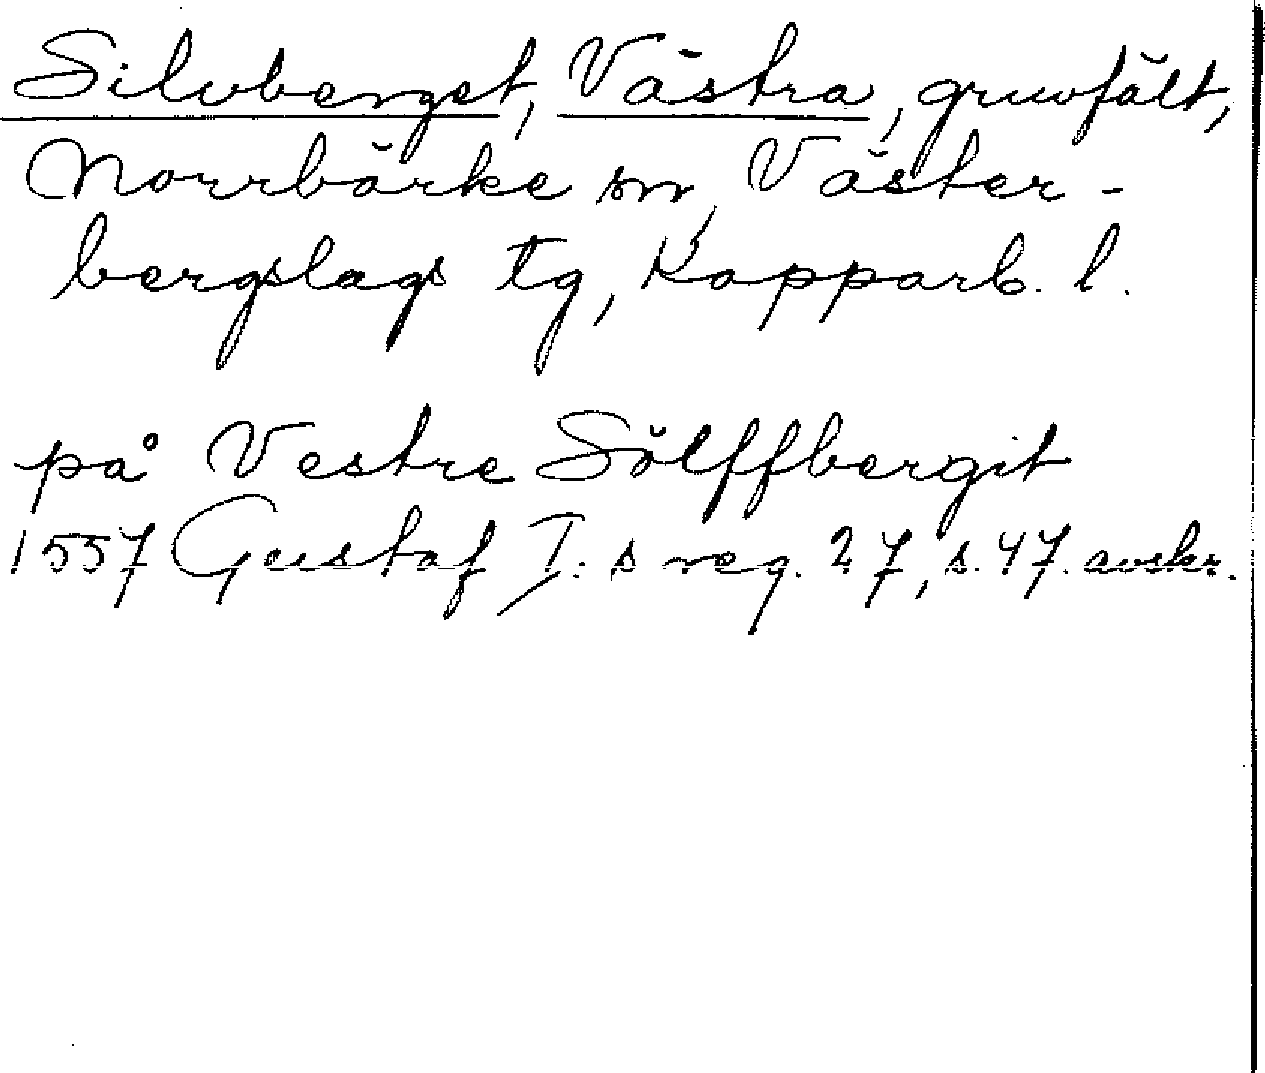 Silvberget, Västra, gruvfält,
Norrbärke sn, Väster-
bergslags tg, Kopparb. l.
på Vestre Sölffbergit
1557 Gustaf I:s reg. 27, s. 47. avskr.